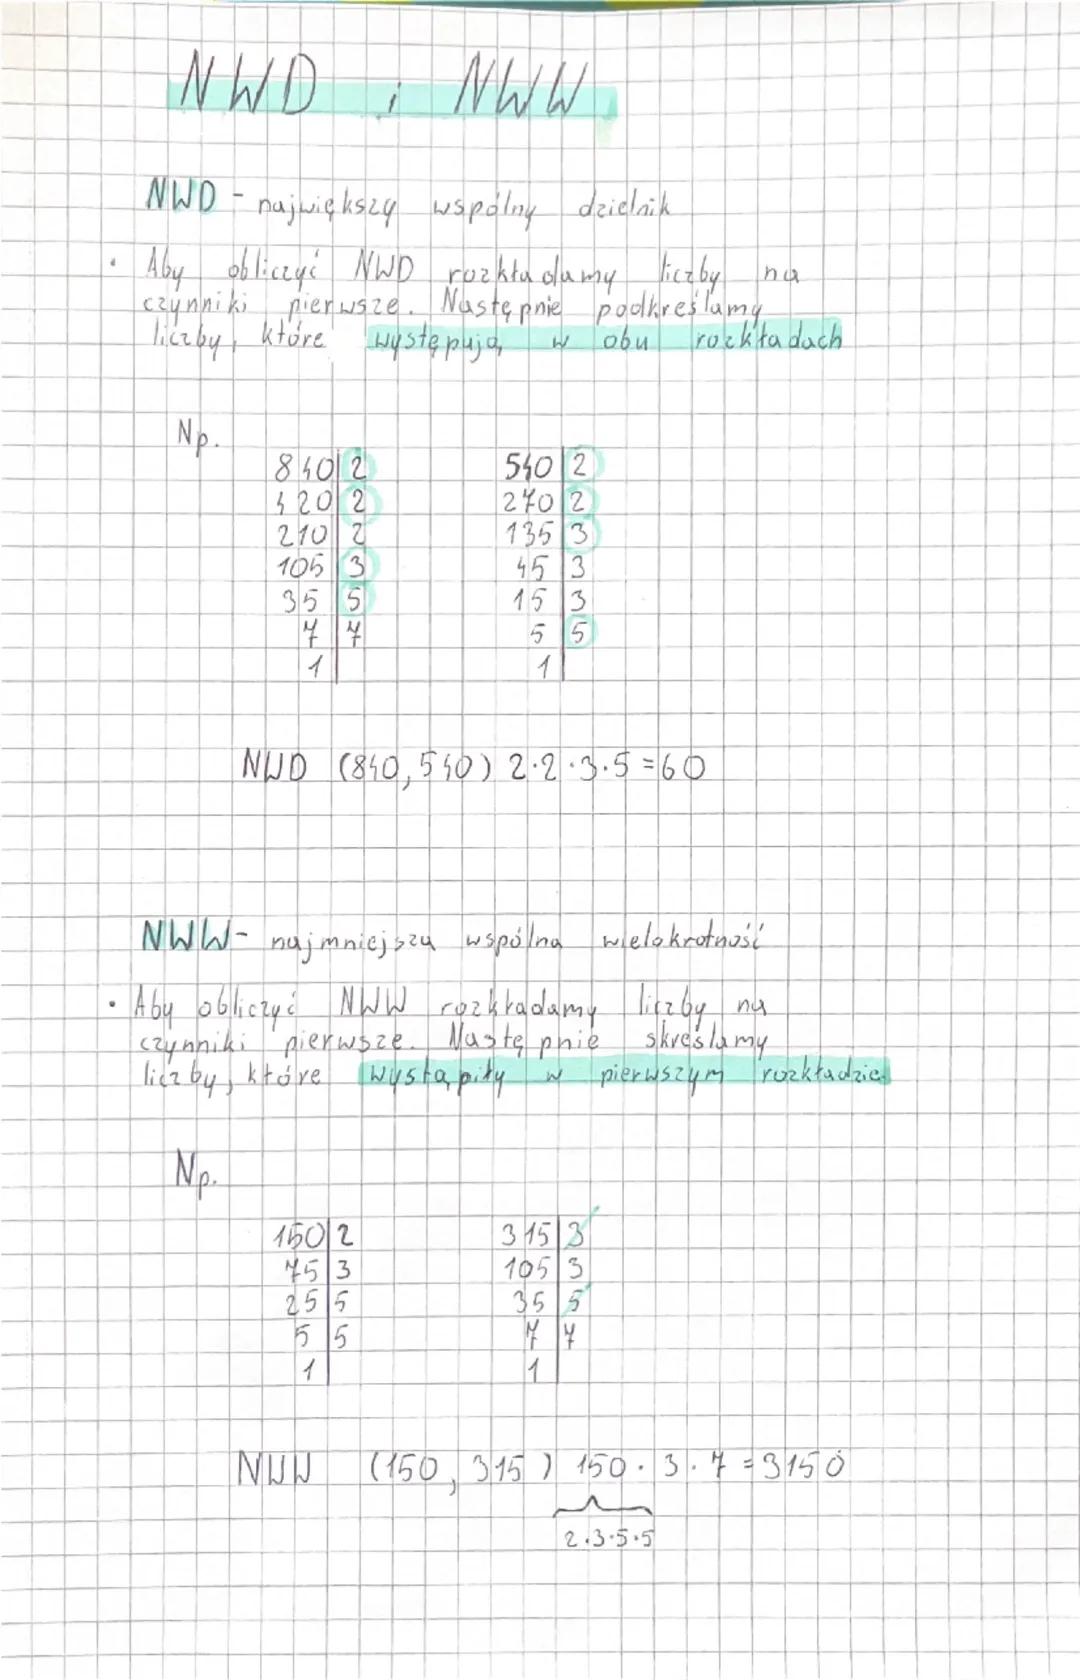 NWD i NWW
NWD - największy wspólny dzielnik
• Aby obliczyć NWD rozkładamy liczby na
czynniki pierwsze. Następnie podkreślamy
liczby, które występują w obu rozkładach
Np.
840 | 2 540 | 2
420 | 2 270 | 2
210 | 2 135 | 3
105 | 3 45 | 3
35 | 5 15 | 3
7 | 7 5 | 5
1 | 1 |
NWD (840, 540) 2·2·3·5 = 60
NWW - najmniejsza wspólna wielokrotność
• Aby obliczyć NWW rozkładamy liczby na
czynniki pierwsze. Następnie skreślamy
liczby, które wystąpiły w pierwszym rozkładzie
Np.
150 | 2 315 | 3
75 | 3 105 | 3
25 | 5 35 | 5
5 | 5 7 | 7
1 | 1 |
NWW (150, 315) 150 · 3 · 7 = 3150
2·3·5·5